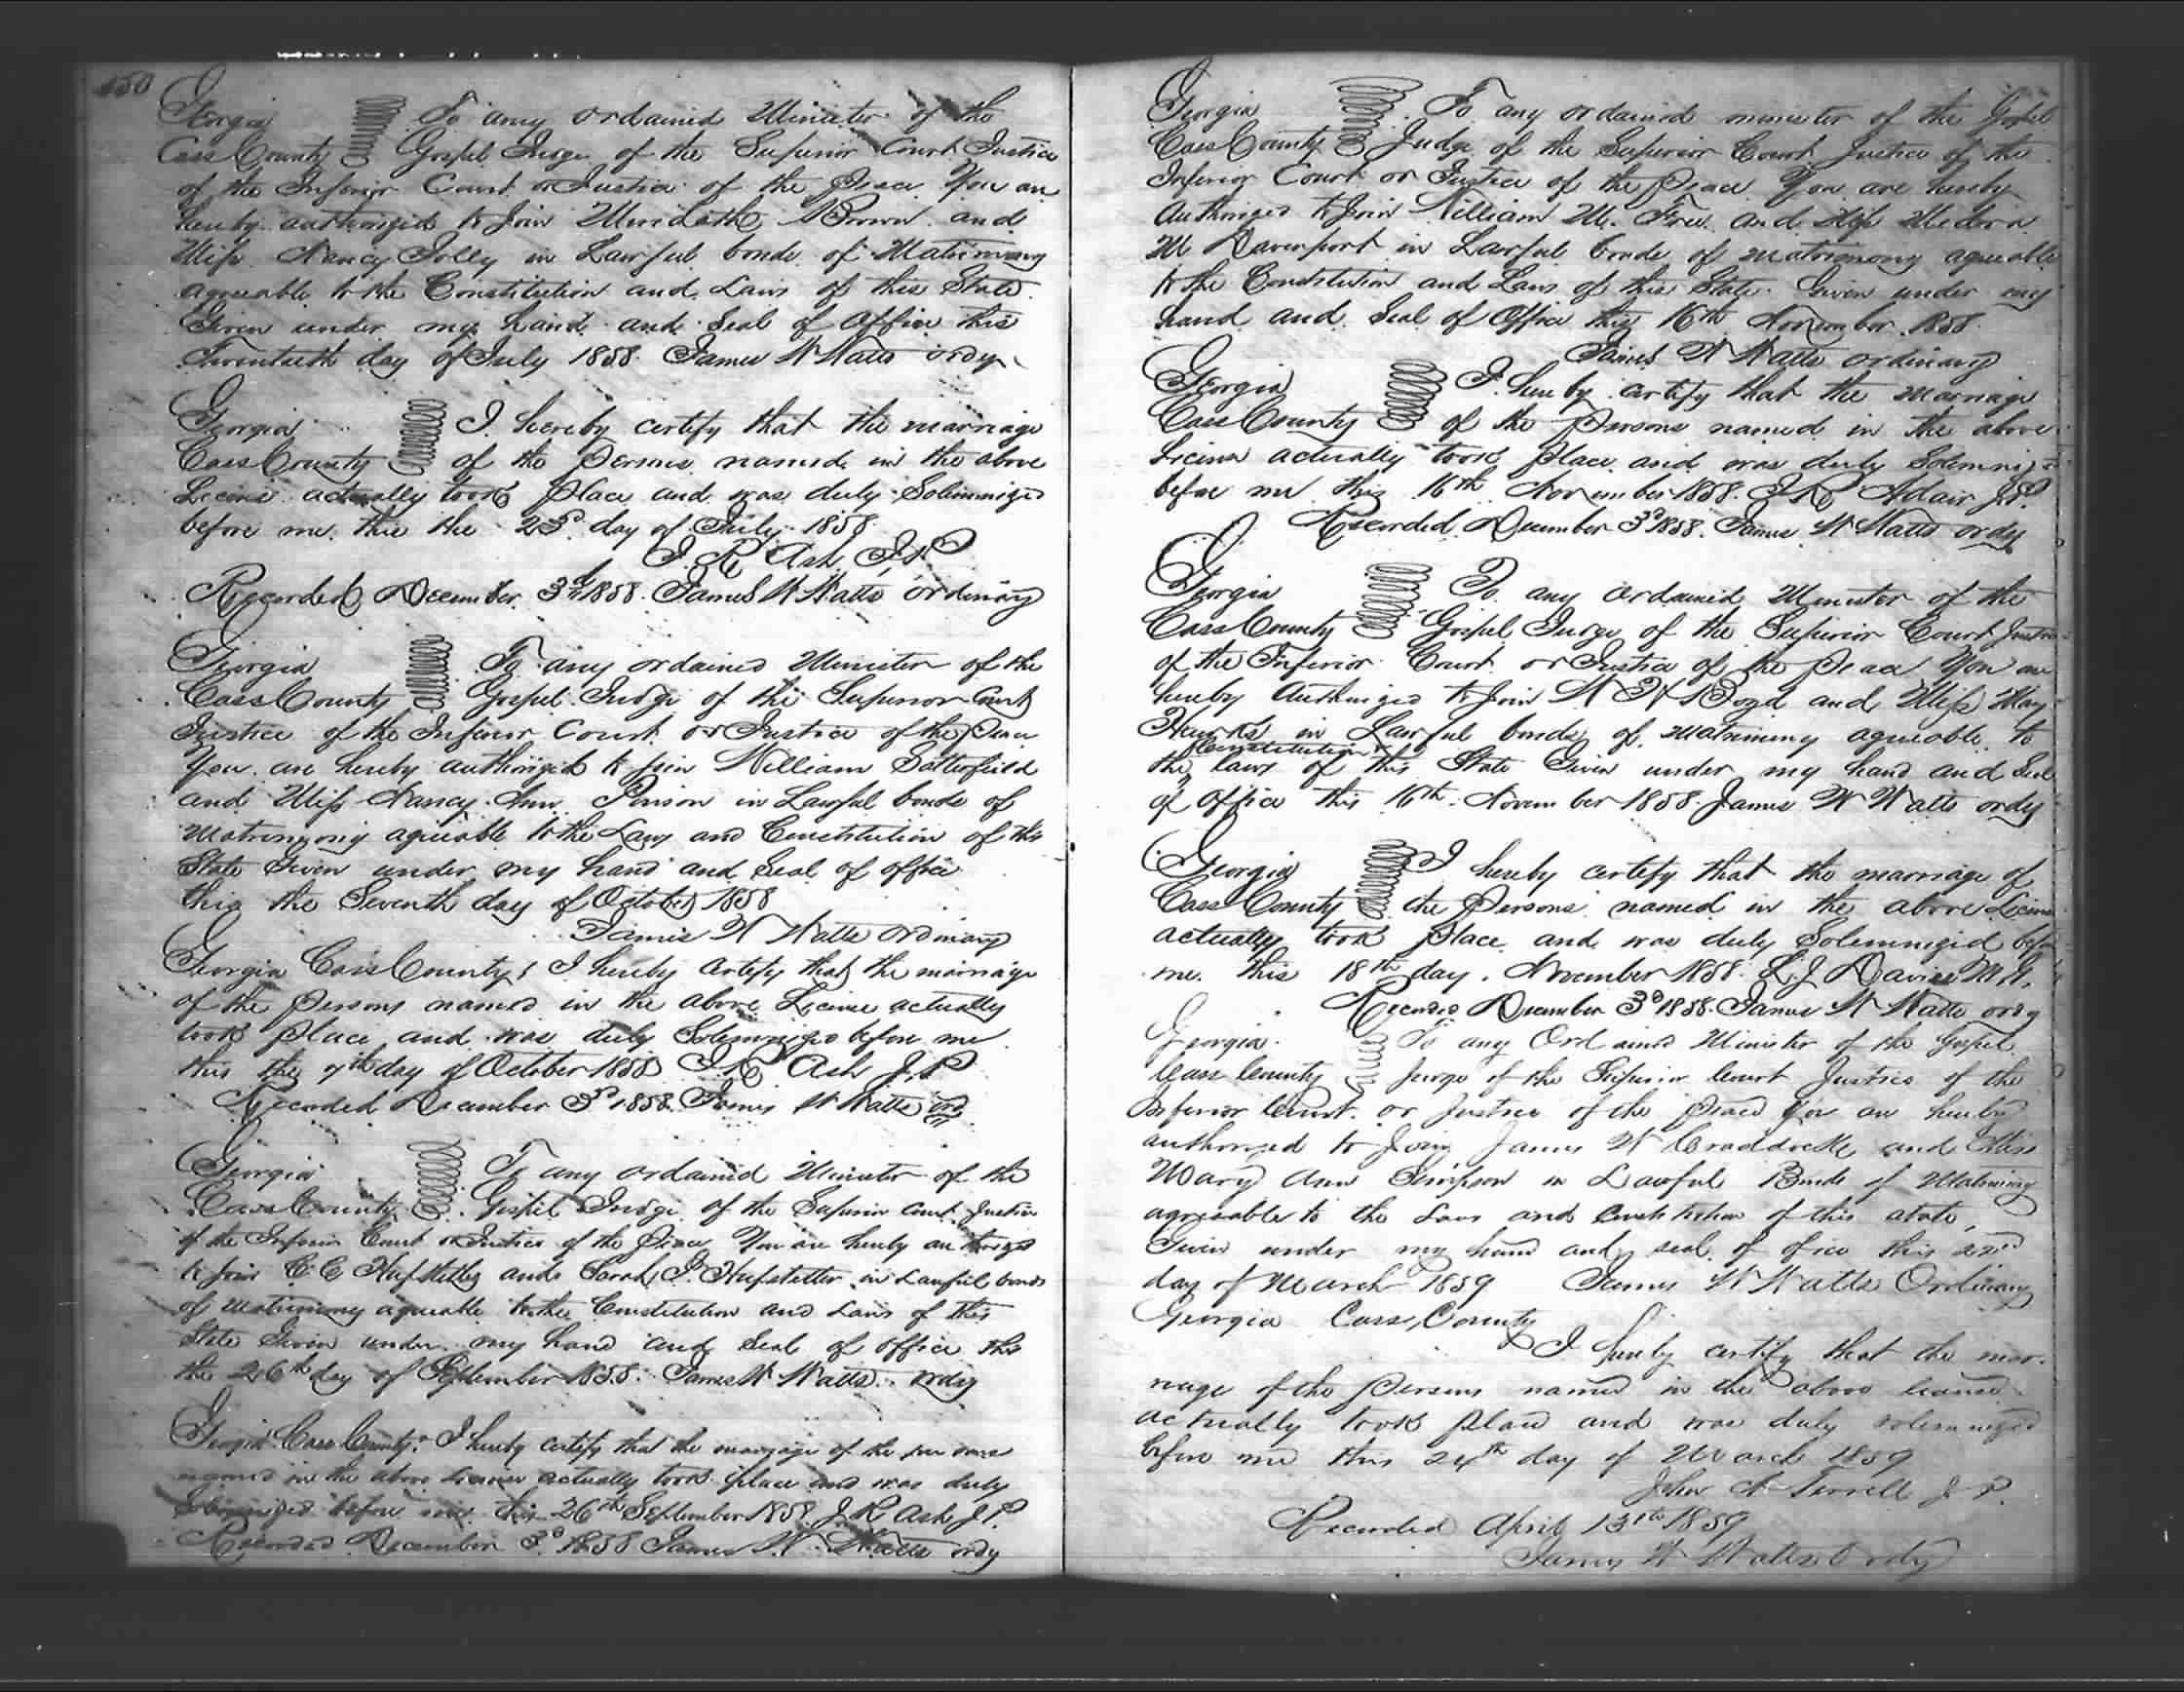 450
Georgia To any ordained Minister of the
Cass County Gospel Judge of the Superior Court Justice
of the Inferior Court or Justice of the Peace You are
hereby authorized to Join Meredith Brown and
Miss Nancy Jolly in Lawful bonds of Matrimony
agreeable to the Constitution and Laws of this State
Given under my hand and Seal of Office this
Twentieth day of July 1858 James W Watts ordy
Georgia I hereby certify that the marriage
Cass County of the Persons named in the above
Licens actually took place and was duly Solemnized
before me this the 23d day of July 1858
J. R. Ash J,P
Recorded December 3d 1858 James W Watts ordinary
Georgia To any ordained Minister of the
Cass County Gospel Judge of the Superior Court
Justice of the Inferior Court or Justice of the Peace
You are hereby authorized to join William Satterfield
and Miss Nancy Ann Pinson in Lawful bonds of
Matrimony agreeable to the Laws and Constitution of this
State Given under my hand and Seal of office
this the Seventh day of October 1858
James W Watts ordinary
Georgia Cass County I hereby certify that the marriage
of the Persons named in the above License actually
took place and was duly Solemnized before me
this the 7th day of October 1858 J. R Ash J,P
Recorded December 3d 1858 James W Watts ordy
Georgia To any ordained Minister of the
Cass County Gospel Judge of the Superior Court Justice
of the Inferior Court or Justice of the Peace You are hereby authorized
to join C C Hufstetler and Sarah J. Hufstetler in Lawful bonds
of Matrimony agreeable to the Constitution and Laws of this
State Given under my hand and Seal of office this
the 26th day of September 1858 James W Watts ordy
Georgia Cass County I hereby certify that the marriage of the persons
named in the above License actually took place and was duly
Solemnized before me this 26th September 1858 J R Ash J.P.
Recorded December 3d 1858 James W. Watts ordy
Georgia To any ordained minister of the Gospel
Cass County Judge of the Superior Court Justice of the
Inferior Court or Justice of the Peace You are hereby
Authorized to Join William M. and Miss Medora
M Davenport in Lawful bonds of matrimony agreeable
to the Constitution and Laws of this State Given under my
hand and Seal of Office this 16th November 1858
James W Watts ordinary
Georgia I hereby certify that the marriage
Cass County of the Persons named in the above
License actually took place and was duly Solemnized
before me this 16th November 1858. Adair J.P.
Recorded December 3d 1858. James W Watts ordy
Georgia To any ordained Minister of the
Cass County Gospel Judge of the Superior Court Justice
of the Inferior Court or Justice of the Peace You are
hereby Authorized to Join W H Boyd and Miss May
Hawks in Lawful bonds of matrimony agreeable to
Constitution &
the laws of this State Given under my hand and Seal
of office this 16th November 1858 James W Watts ordy
Georgia I hereby certify that the marriage of
Cass County the Persons named in the above License
actually took place and was duly Solemnized before
me this 18th day November 1858. L. J Davies M.G.
Recorded December 3d 1858. James W Watts ordy
Georgia To any Ordained Minister of the Gospel
Cass County Judge of the Superior Court Justice of the
Inferior Court or Justice of the Peace You are hereby
authorized to Join James W Craddock and Miss
Mary Ann Simpson in Lawful Bonds of Matrimony
agreeable to the Laws and Constitution of this state,
Given under my hand and seal of ofice this
day of March 1859 James W Watts Ordinary
Georgia Cass County
I hereby certify that the mar-
riage of the Persons named in the above license
actually took place and was duly solemnized
before me this 24th day of March 1859
John A Terrell J P.
Recorded April 13th 1859
James W Watts Ordy